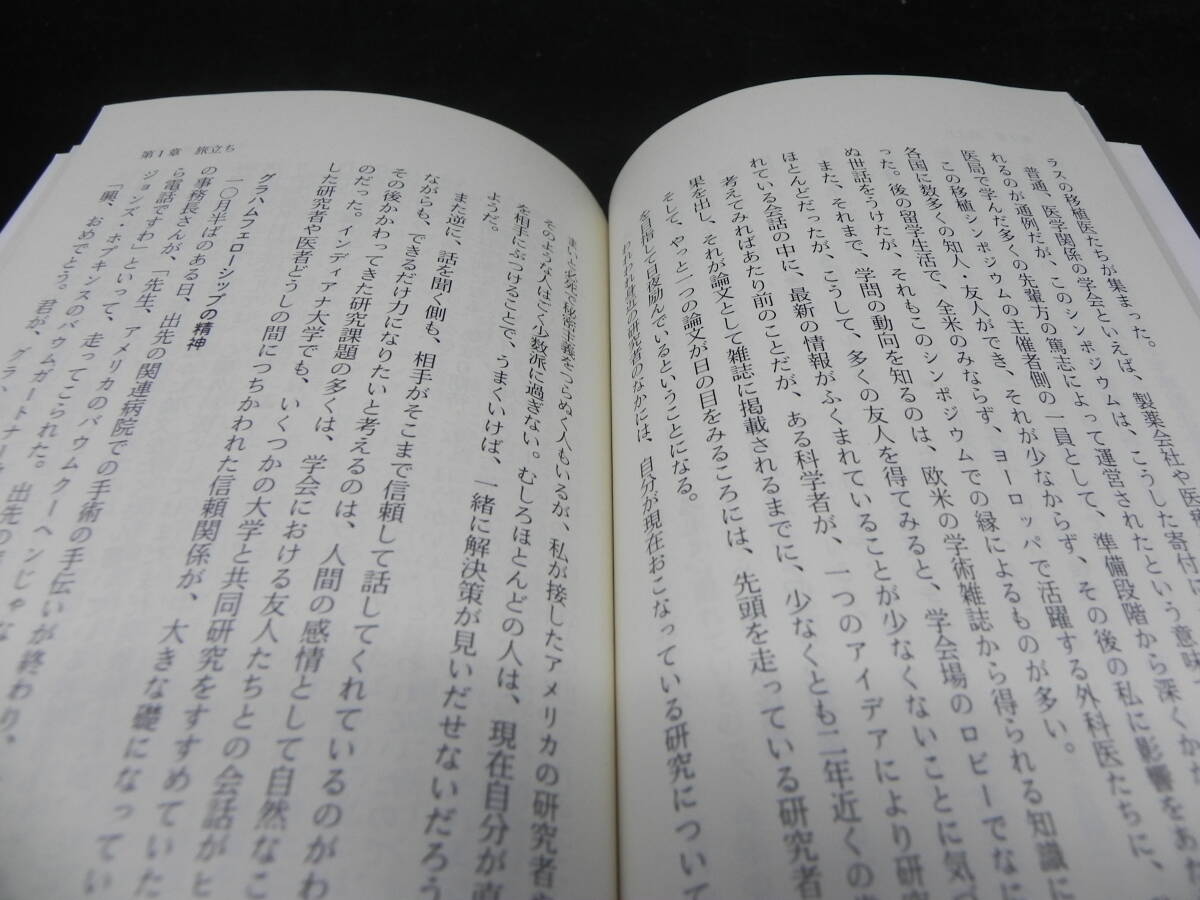 ラスの移植医たちが集まった。
普通、医学関係の学会といえば、製薬会社や医療
れるのが通例だが、このシンポジウムは、こうした寄付に
医局で学んだ多くの先輩方の篤志によって運営されたという意味
この移植シンポジウムの主催者側の一員として、準備段階から深くかか
各国に数多くの知人・友人ができ、それが少なからず、その後の私に影響をあた
った。後の留学生活で、全米のみならず、ヨーロッパで活躍する外科医たちに、
ぬ世話をうけたが、それもこのシンポジウムでの縁によるものが多い。
また、それまで、学問の動向を知るのは、欧米の学術雑誌から得られる知識に
ほとんどだったが、こうして、多くの友人を得てみると、学会場のロビーでなに
れている会話の中に、最新の情報がふくまれていることが少なくないことに気づ
考えてみればあたり前のことだが、ある科学者が、一つのアイデアにより研究
果を出し、それが論文として雑誌に掲載されるまでに、少なくとも二年近くの
そして、やっと一つの論文が日の目をみるころには、先頭を走っている研究者
を目指して日夜励んでいるということになる。
われわれ
の研究者のなかには、自分が現在おこなっている研究について
第1章 旅立ち
まいと必死で秘密主義をつらぬく人もいるが、私が接したアメリカの研究者
そのような人はごく少数派に過ぎない。むしろほとんどの人は、現在自分が直
を相手にぶつけることで、うまくいけば、一緒に解決策が見いだせないだろう
ようだ。
また逆に、話を聞く側も、相手がそこまで信頼して話してくれているのがわ
ながらも、できるだけ力になりたいと考えるのは、人間の感情として自然なこ
その後かかわってきた研究課題の多くは、学会における友人たちとの会話がヒ
のだった。インディアナ大学でも、いくつかの大学と共同研究をすすめていた
した研究者や医者どうしの間につちかわれた信頼関係が、大きな礎になってい
グラハムフェローシップの精神
一〇月半ばのある日、出先の関連病院での手術の手伝いが終わり、
の事務長さんが、「先生、アメリカのバウムクーヘンじゃな
ら電話ですわ」といって、走ってこられた。出先の
ジョンズ・ホプキンスのバウムガートナー
「興、おめでとう。君が、グラ